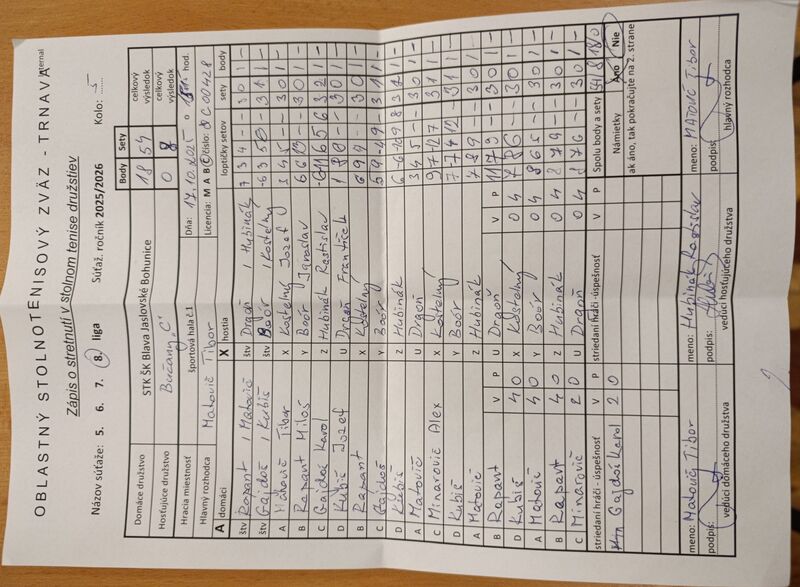 OBLASTNÝ STOLNOTENISOVÝ ZVÄZ - TRNAVA
Zápis o stretnutí v stolnom tenise družstiev
Názov súťaže: 5. 6. 7. 8. liga Súťaž. ročník 2025/2026 Kolo: 5
Body Sety
Domáce družstvo STK ŠK Blava Jaslovské Bohunice 18 54 celkový výsledok
Hosťujúce družstvo Bučany "C" 0 8 celkový výsledok
Hracia miestnosť športová hala č.1 Dňa: 17.10.2025 o hod.
Hlavný rozhodca Matovič Tibor Licencia: M A B C číslo:
A domáci X hostia loptičky setov sety body
štv Rapant / Matovič štv Dragoň / Hubinák 7 3 4 - - 3 0 1 -
štv Gajdoš / Kubiš štv Boór / Kostelný -6 3 5 - 3 1 1 -
A Matovič Tibor X Kostelný Jozef 3 4 5 - - 3 0 1 -
B Rapant Miloš Y Boór Jaroslav 3 0 1 -
C Gajdoš Karol Z Hubinák Rastislav 3 2 1 -
D Kubiš Jozef U Dragoň František 3 0 1 -
B Rapant X Kostelný 3 0 1 -
C Gajdoš Y Boór 3 1 1 -
D Kubiš Z Hubinák 1 -
A Matovič U Dragoň 3 4 5 - - 3 0 1 -
C Minarovič Alex X Kostelný 9 7 -12 7 - 3 1 1 -
D Kubiš Y Boór 7 7 4 12 - 3 1 1 -
A Matovič Z Hubinák 7 8 9 - - 3 0 1 -
B Rapant U Dragoň 11 7 9 - - 3 0 1 -
V P V P
D Kubiš 4 0 X Kostelný 0 4 7 8 6 - - 3 0 1 -
A Matovič 4 0 Y Boór 0 4 8 6 5 - - 3 0 1 -
B Rapant 4 0 Z Hubinák 0 4 8 7 9 - - 3 0 1 -
C Minarovič 2 0 U Dragoň 0 4 8 7 6 - - 3 0 1 -
striedaní hráči -úspešnosť V P striedaní hráči -úspešnosť V P Spolu body a sety 54 8 18 0
Gajdoš Karol 2 0 Námietky Áno Nie
ak áno, tak pokračujte na 2. strane
meno: Matovič Tibor meno: Hubinák Rastislav meno: MATOVIČ TIBOR
podpis: podpis: podpis:
vedúci domáceho družstva vedúci hosťujúceho družstva hlavný rozhodca